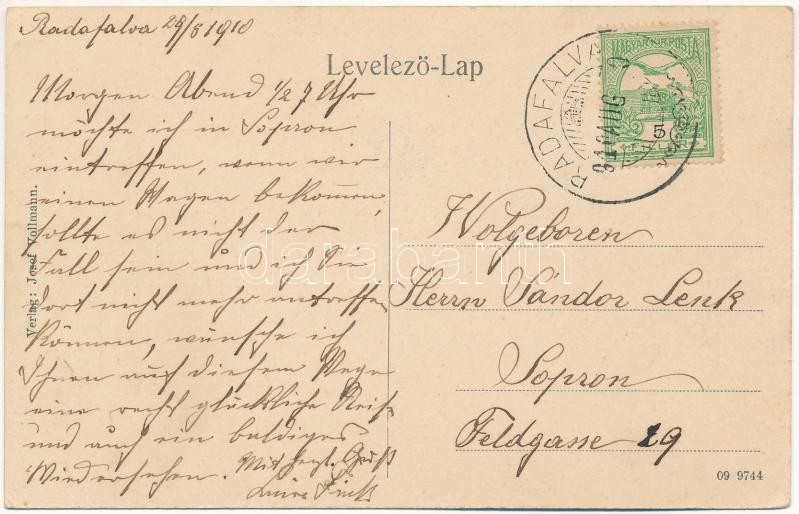 Radafalva 29/8 1910
Levelező-Lap
Morgen Abend 1/2 7 Uhr
möchte ich in Sopron
eintreffen, wenn wir
einen Wagen bekommen,
sollte es nicht der
Fall sein und ich Sie
dort nicht mehr antreffen
können, wünsche ich
Ihnen auf diesem Wege
eine recht glückliche Reise
und auch ein baldiges
Wiedersehen. Mit herzl. Gruß
Verlag: Josef Vollmann.
MAGYAR KIR. POSTA
5
RADAFALVA
910 AUG
Wolgeboren
Herrn Sandor Lenk
Sopron
Feldgasse 29
09 9744
darabanth